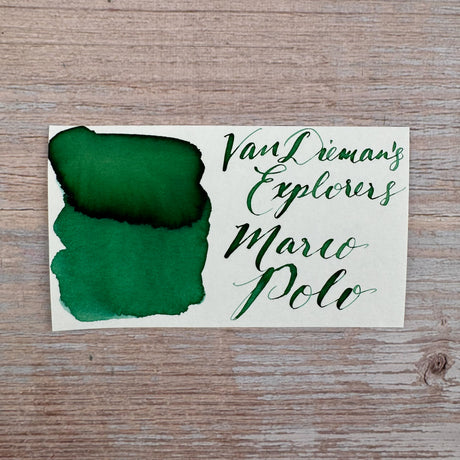 Van Dieman's
Explorers
Marco
Polo